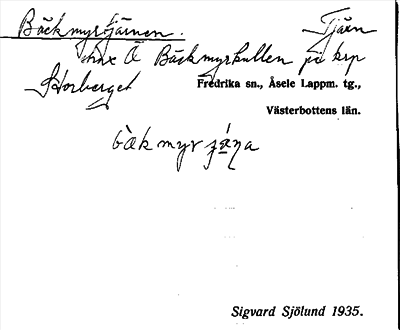 Bäckmyrtjärnen. Tjärn
hnx Ö Bäckmyrkullen på krp
Storberget
Fredrika sn., Åsele Lappm. tg.,
Västerbottens län.
bàkmyr
Sigvard Sjölund 1935.